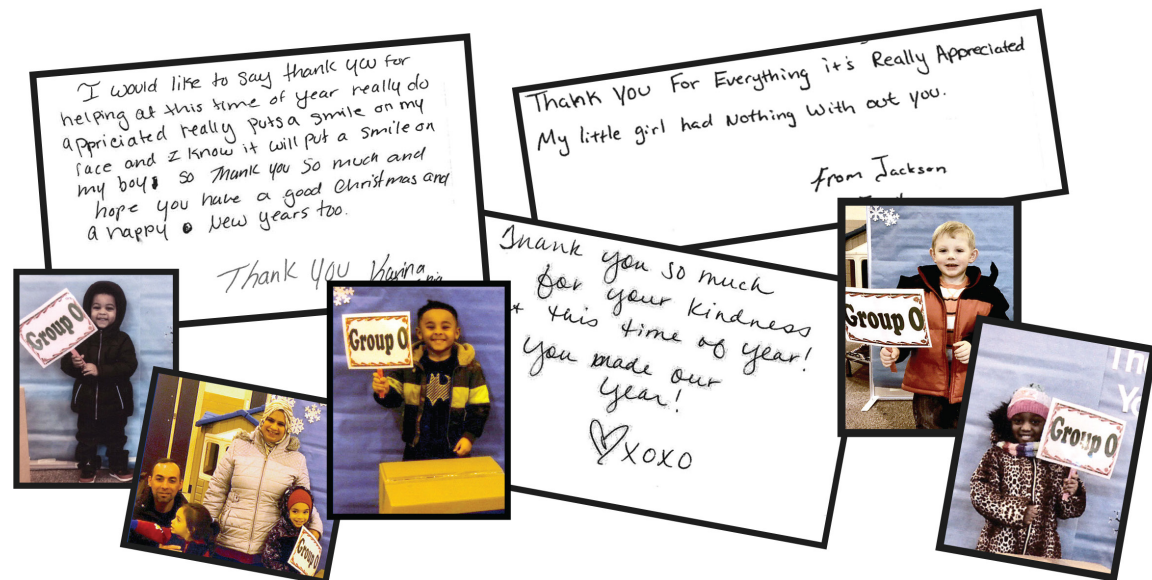 I would like to say thank you for
helping at this time of year really do
appriciated really puts a smile on my
face and I know it will put a smile on
my boys so Thank you so much and
hope you have a good Christmas and
a happy New years too.
Thank you Karina
Thank You For Everything it's Really Appreciated
My little girl had Nothing With out you.
from Jackson
Thank you so much
for your kindness
this time of year!
You made our
year!
♡xoxo
Group O
Group O
Group O
Group O
Group O